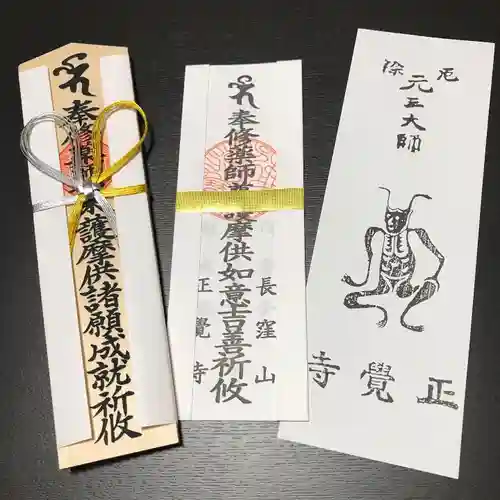 奉修薬師尊護摩供諸願成就祈攸
奉修薬師尊護摩供如意吉善祈攸
長窪山
正覺寺
厄除
元三大師
正覺寺